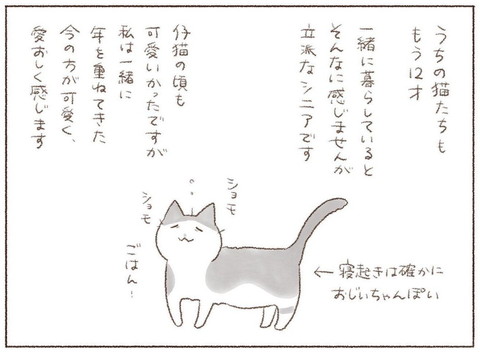 うちの猫たちも
もう12才
一緒に暮らしていると
そんなに感じませんが
立派なシニアです
仔猫の頃も
可愛いかったですが
私は一緒に
年を重ねてきた
今の方が可愛く、
愛おしく感じます
ショモ
ショモ
ごはん…
←寝起きは確かに
おじいちゃんぽい